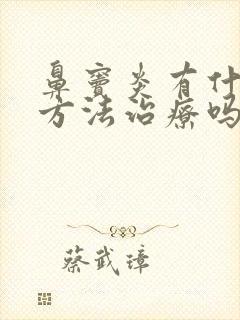 鼻窦炎有什
方法治療吗
蔡武璋